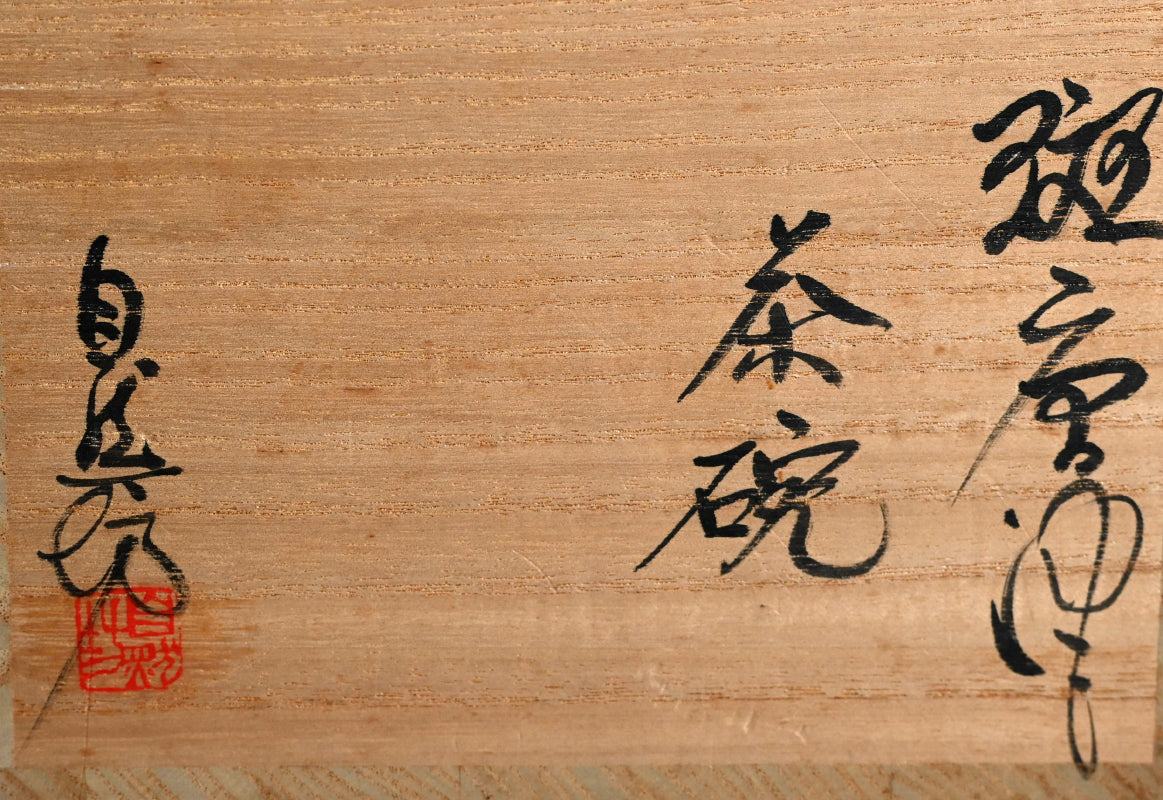 斑唐津
茶碗
自然坊